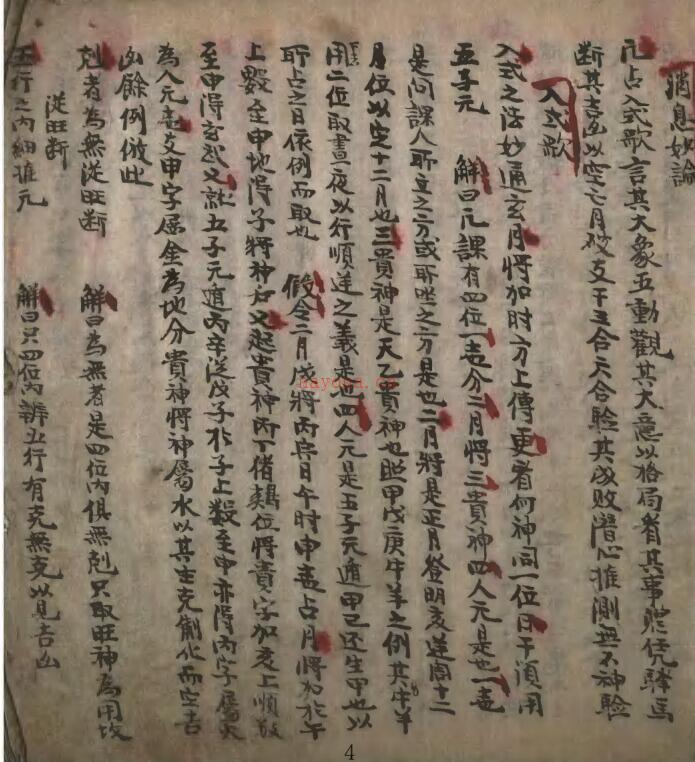 消息妙論
凡占入式歌言其大象五動觀其大意以格局看其事體凭驛馬
断其吉凶以空亡月破支干三合六合驗其成敗潛心推測無不神驗
入式歌
入式之法妙通玄月將加时方上傳更看何神同一位日干須用
五子元 解曰凡課有四位一壬分二月將三貴神四人元是也一壬
是问課人所立之方或所坐之方是也二月將是正月登明亥逆同十二
月位以定十二月也三貴神是天乙貴神也照甲戊庚牛羊之例其牛羊
用二位取晝夜以行順逆之義是也四人元是五子元遁甲己还生甲也以
所占之日依例而取也 假令二月戌將丙辛日午时申壬占月將加於午
上數至申地得子將神后又起貴神丙丁猪鷄位將貴字加亥上順数
至申得玄武又就五子元遁丙辛從戊子於子上数至申亦得丙字屬火
為人元壬支申字屬金為地分貴神將神屬水以其生克制化而定吉
凶餘例倣此
尅者為無從旺断 解曰為無者是四位内俱無尅只取旺神為用故
從旺断
五行之内細推元 解曰只四位内辨五行有克無克以見吉凶
4